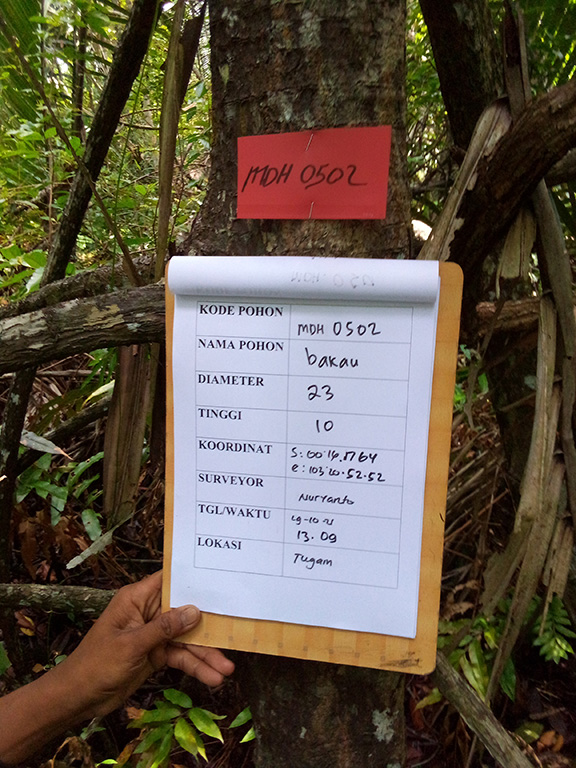 MDH 0502
KODE POHON MDH 0502
NAMA POHON bakau
DIAMETER 23
TINGGI 10
KOORDINAT S: 00.14.
e: 103.20.52.52
SURVEYOR Nuryanto
TGL/WAKTU
13.09
LOKASI Tugam